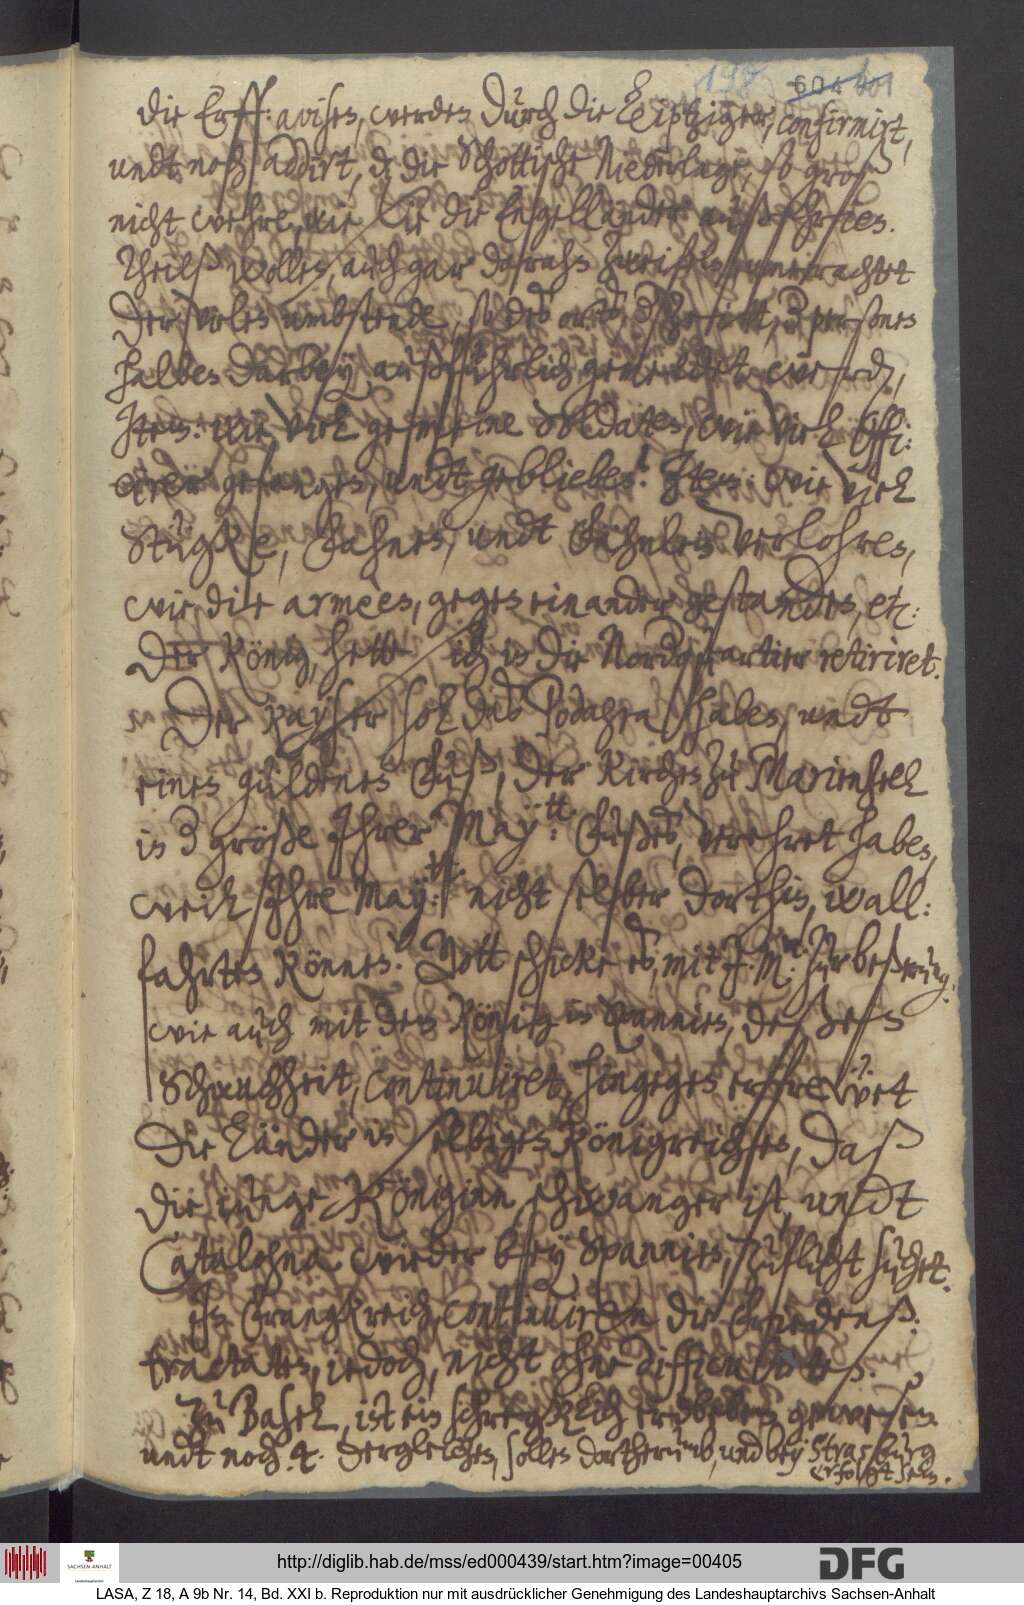 198 604 601
die Erff: avisen, werden durch die Leiptziger, confirmirt,
undt noch addirt, das die Schottische Niederlage, so groß
nicht wehre, wie Sie die Engelländer außschreyen.
Theilß wollen, auch gar daran zweifeln, unerachtet
der vielen umbstende, so des orts, der zeitt, der personen
halben darbey außführlich gemeldet werden,
Item: wie viel gemeine Soldaten, wie viel Offi:
cirer gefangen, undt geblieben? Item: wie viel
Stügke, Fahnen, undt Fähnlein verlohren,
wie die armèen, gegen einander gestanden, etc:
Der König, hette sich in die Nordquartier retiriret.
Der Kayser soll das Podagra haben, undt
einen güldenen Fuß, der Kirchen zu Marienzell
in der größe Ihrer May:tt Fußes, verehret haben,
weil Ihre May:tt: nicht selber dorthin, wall:
fahrten können. Gott schicke es, mit I. M. zur beßerung.
wie auch mit dem König in Spannien, deßen
Schwachheit, continuiret, hingegen erffrewet
die Länder in selbigen Königreichen, daß
die iunge Königinn schwanger ist, undt
Catalohna wieder bey Spannien, zuflucht suchet.
In Frangkreich, continuiren die Friedenß:
tractaten, iedoch, nicht ohne difficulteten.
Zu Basel, ist ein schregklich erdbeben gewesen
undt noch 4. dergleichen, sollen dortherumb, und bey Straßburg
erfolgt sein.
http://diglib.hab.de/mss/ed000439/start.htm?image=00405
SACHSEN-ANHALT
Landeshauptarchiv
DFG
LASA, Z 18, A 9b Nr. 14, Bd. XXI b. Reproduktion nur mit ausdrücklicher Genehmigung des Landeshauptarchivs Sachsen-Anhalt